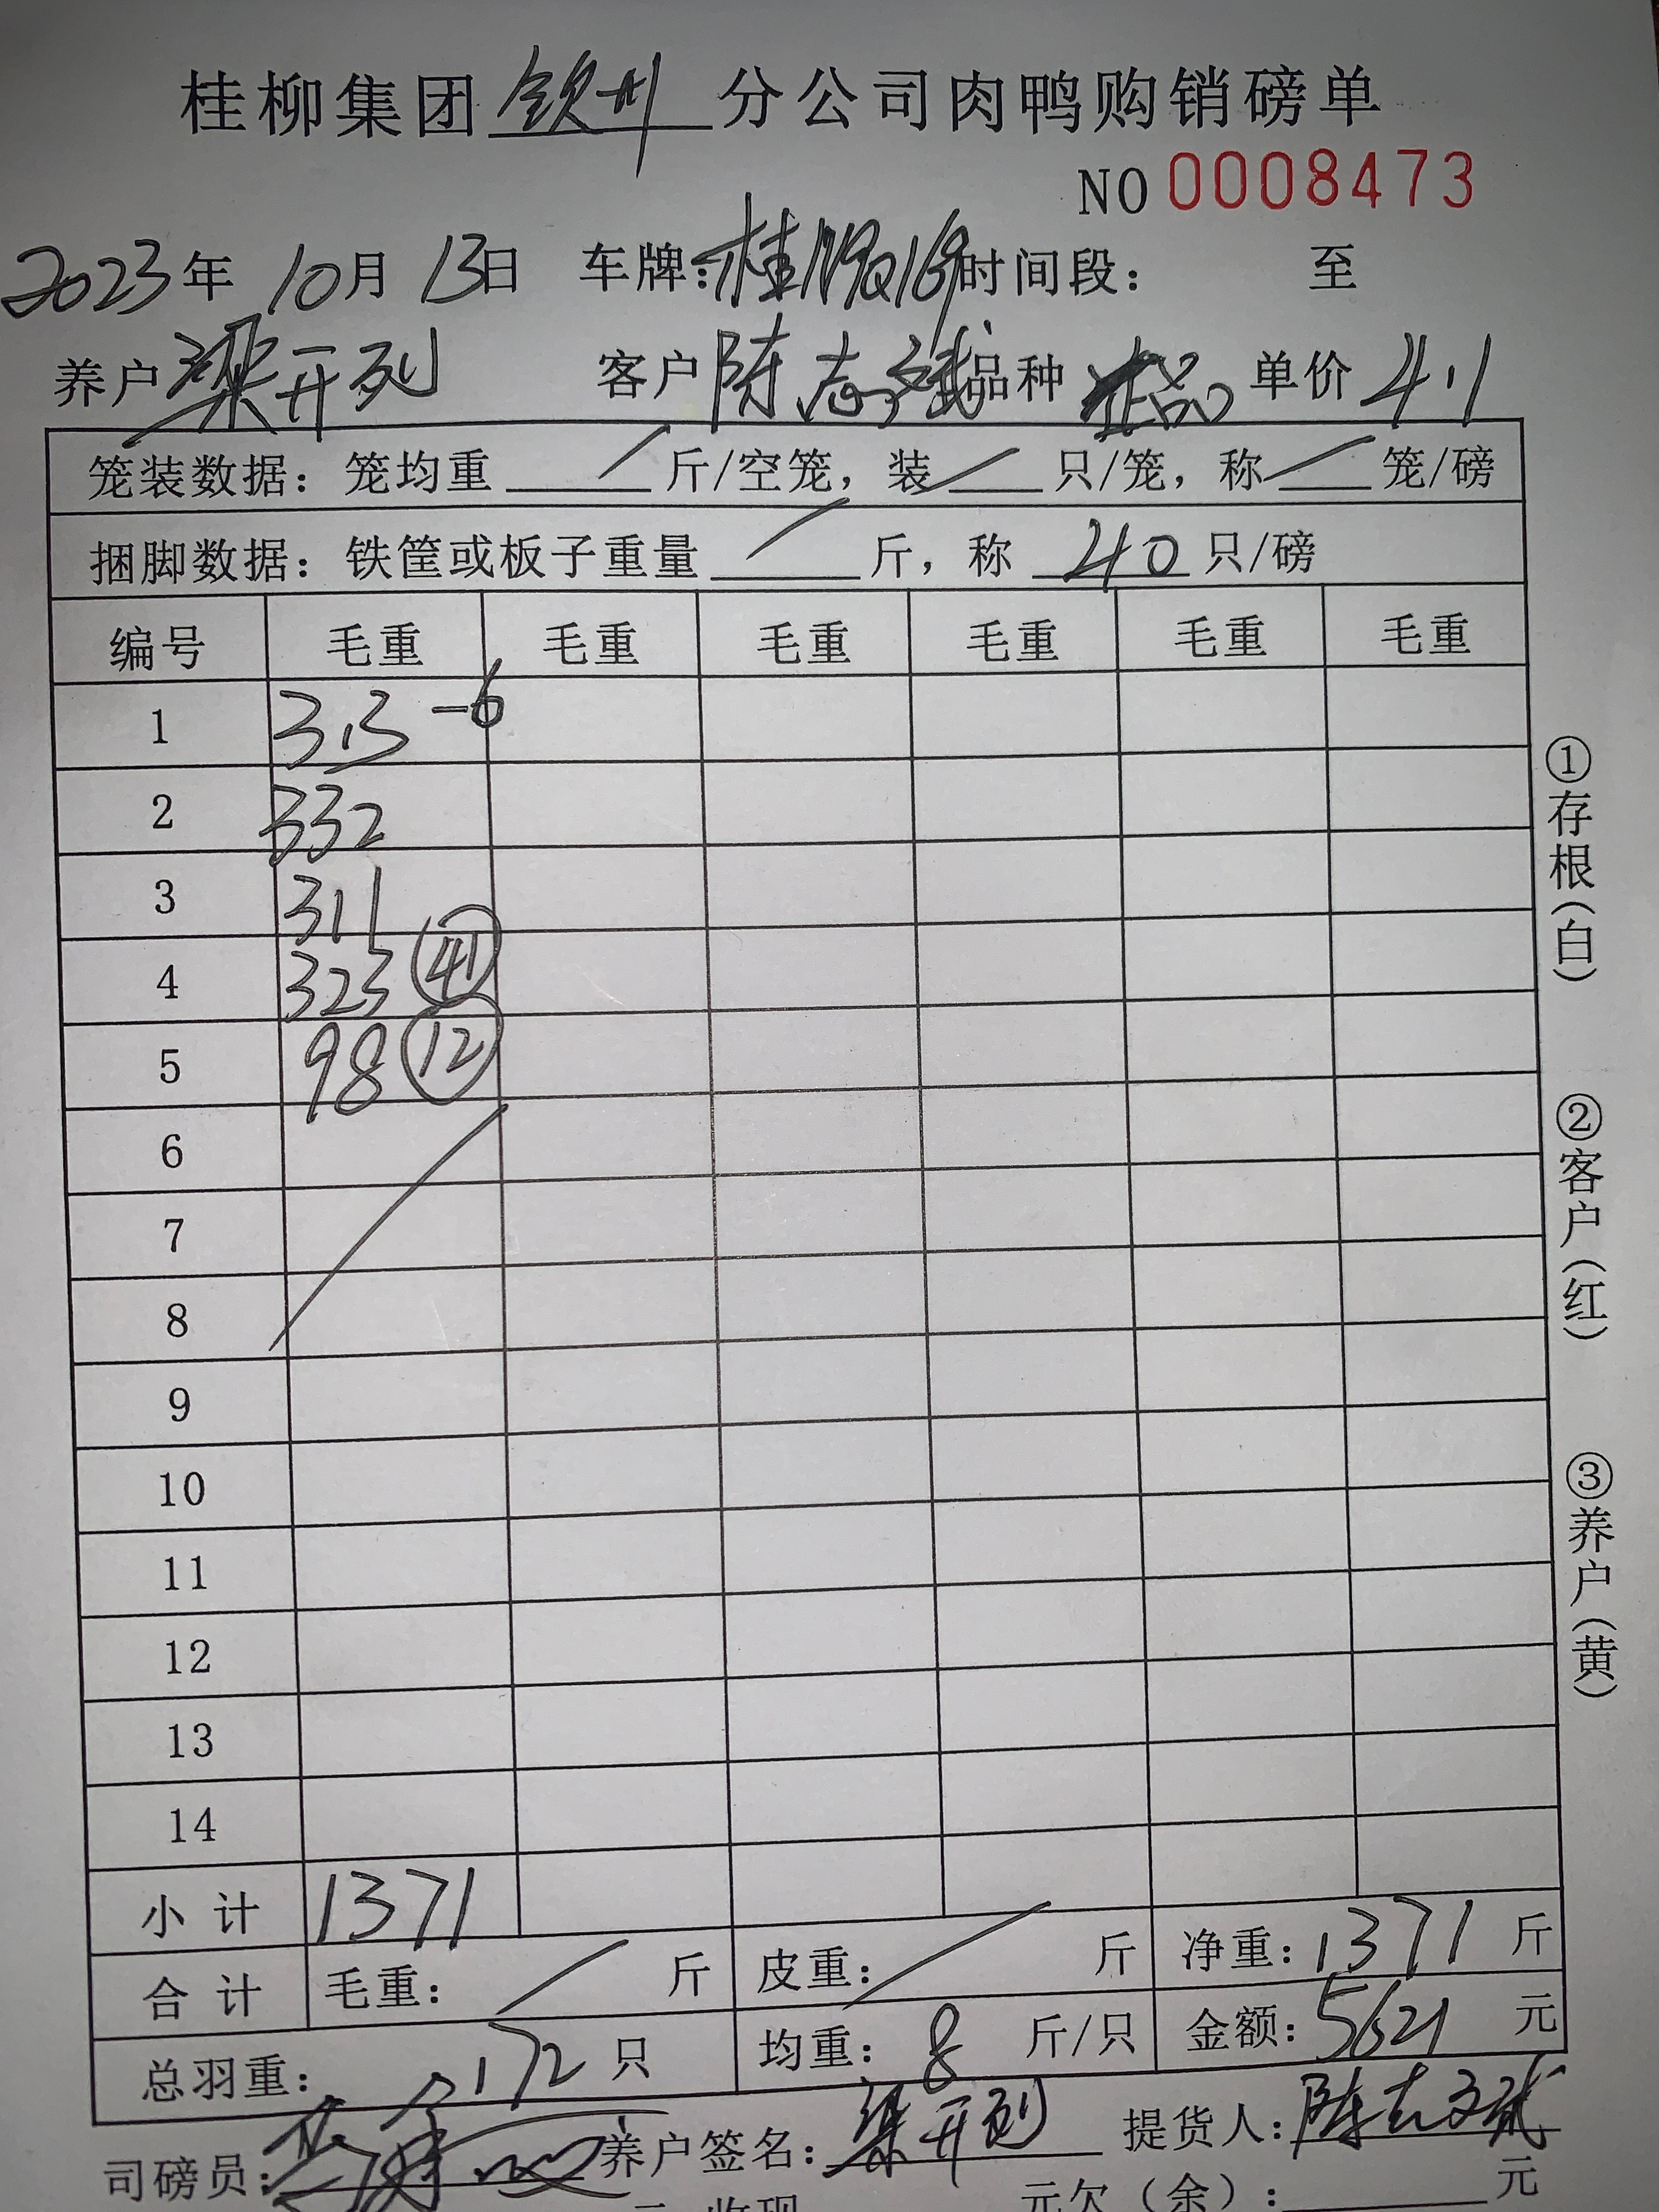 桂柳集团 钦州 分公司肉鸭购销磅单
NO 0008473
2023年 10月 13日 车牌: 时间段: 至
养户 梁开列 客户 陈志斌 品种 正品 单价 4.1
笼装数据: 笼均重 / 斤/空笼, 装 / 只/笼, 称 / 笼/磅
捆脚数据: 铁筐或板子重量 / 斤, 称 40 只/磅
编号 毛重 毛重 毛重 毛重 毛重 毛重
1 313 -6
2 332
3 311
4 323 41
5 98 12
6
7
8
9
10
11
12
13
14
小计 1371
合计 毛重: / 斤 皮重: / 斤 净重: 1371 斤
总羽重: 172 只 均重: 8 斤/只 金额: 5621 元
司磅员: 养户签名: 梁开列 提货人: 陈志斌
元 收现 元欠(余): 元
①存根(白)
②客户(红)
③养户(黄)